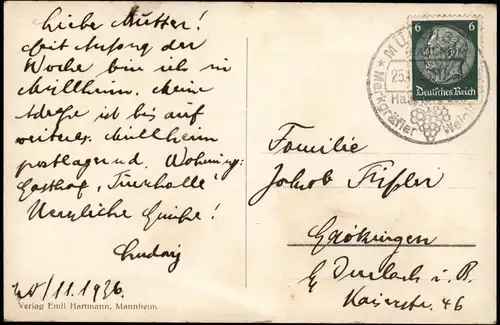 Liebe Mutter!
Mit Anfang der
Woche bin ich in
Müllheim. Meine
Adresse ist bis auf
weiteres Müllheim
postlagernd. Wohnung:
Gasthof „Turnhalle“
Herzliche Grüße!
Ludwig
/11.1936.
Verlag Emil Hartmann, Mannheim
6 6
Deutsches Reich
MÜ
25.
Markgräfler Wein
Familie
Jakob
Grötzingen
b/ Durlach i. B.
Kaiserstr. 46